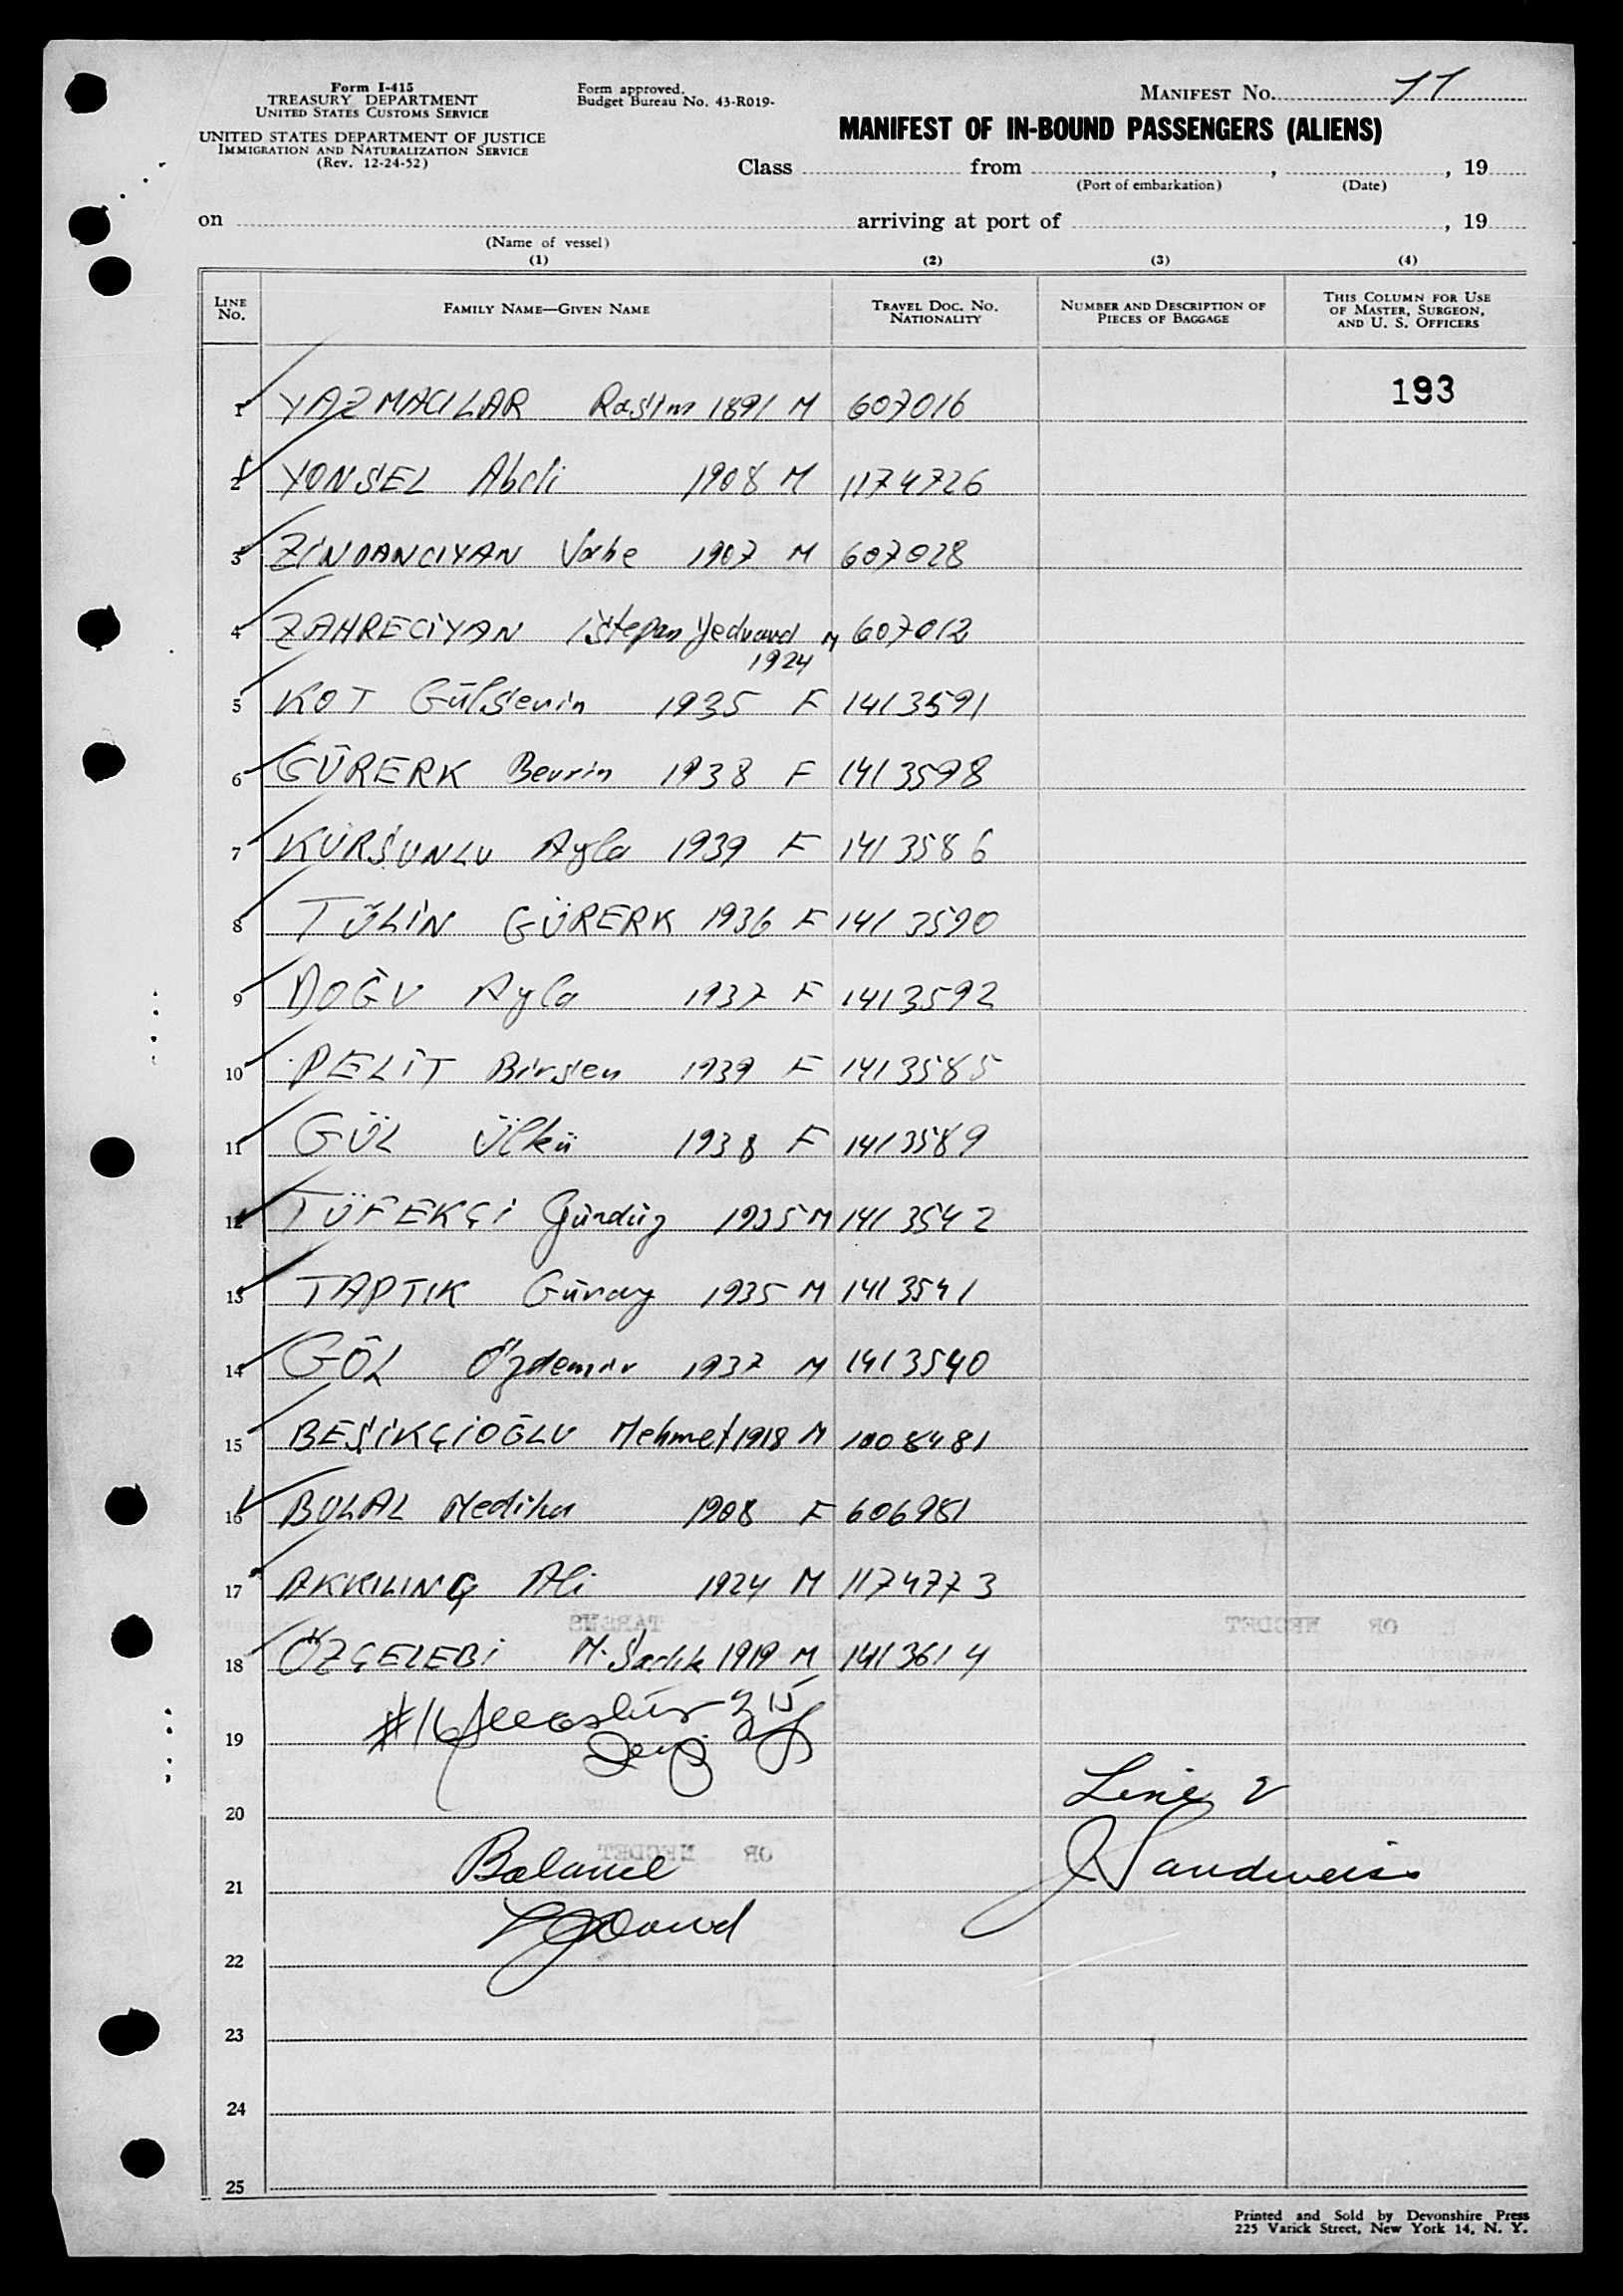 Form I-415
TREASURY DEPARTMENT
UNITED STATES CUSTOMS SERVICE
UNITED STATES DEPARTMENT OF JUSTICE
IMMIGRATION AND NATURALIZATION SERVICE
(Rev. 12-24-52)
Form approved.
Budget Bureau No. 43-R019-
MANIFEST No. 77
MANIFEST OF IN-BOUND PASSENGERS (ALIENS)
Class from , , 19
(Port of embarkation) (Date)
on arriving at port of , 19
(Name of vessel)
(1) (2) (3) (4)
LINE No. FAMILY NAME—GIVEN NAME TRAVEL DOC. No. NATIONALITY NUMBER AND DESCRIPTION OF PIECES OF BAGGAGE THIS COLUMN FOR USE OF MASTER, SURGEON, AND U. S. OFFICERS
193
1 YAZMACILAR Rasim 1891 M 607016
2 YONSEL Abdi 1908 M 1174726
3 ZİNDANCIYAN Vahe 1907 M 607028
4 ZAHRECİYAN İstepan Yedvard M 607012
1924
5 KOT Gülsevin 1935 F 1413591
6 GÜRERK Bevrin 1938 F 1413598
7 KURŞUNLU Ayla 1939 F 1413586
8 TÜLİN GÜRERK 1936 F 1413590
9 DOĞU Ayla 1937 F 1413592
10 PELİT Birsen 1939 F 1413585
11 GÜL Ülkü 1938 F 1413589
12 TÜFEKÇİ Gündüz 1935 M 1413542
13 TAPTIK Günay 1935 M 1413541
14 GÖL Özdemir 1937 M 1413540
15 BEŞİKÇİOĞLU Mehmet 1918 M 1008481
16 BULAL Mediha 1908 F 606981
17 AKKILINÇ Ali 1924 M 1174773
18 ÖZÇELEBİ M. Sadık 1919 M 1413614
#16
19
Line 2
20
Balance
J Sandweiss
21
22
23
24
25
Printed and Sold by Devonshire Press
225 Varick Street, New York 14, N. Y.